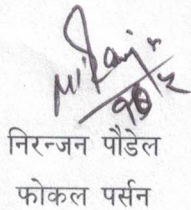 निरन्जन पौडेल
फोकल पर्सन